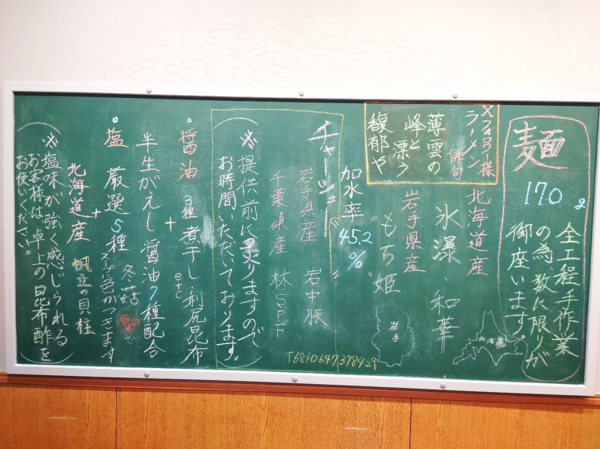 麺
170g
全工程手作業
の為、数に限りが
御座います。
ラーメン 俳句
薄雲の
峰と漂う
馥郁や
北海道産
氷瀑、和華
岩手県産
"もち姫"
北海道
岩手
加水率
45.2
%
チャーシュー
岩手県産 岩中豚
千葉県産 林SPF
T6810647378429
(※提供前に炙りますので
お時間いただいております。)
・醤油 3種煮干し、利尻昆布
+ etc
半生がえし 醤油7種配合
・塩 厳選5種
+
北海道産 帆立の貝柱
(※塩味が強く感じられる
お客様は、卓上の昆布酢を
お使いください。)